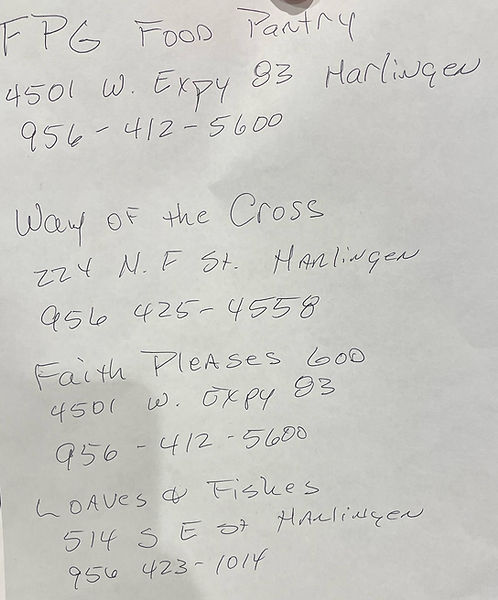 FPG Food Pantry
4501 W. Expy 83 Harlingen
956-412-5600
Way of the Cross
224 N. F St. Harlingen
956 425-4558
Faith Pleases 600
4501 W. Expy 83
956-412-5600
Loaves & Fishes
514 S E St Harlingen
956 423-1014